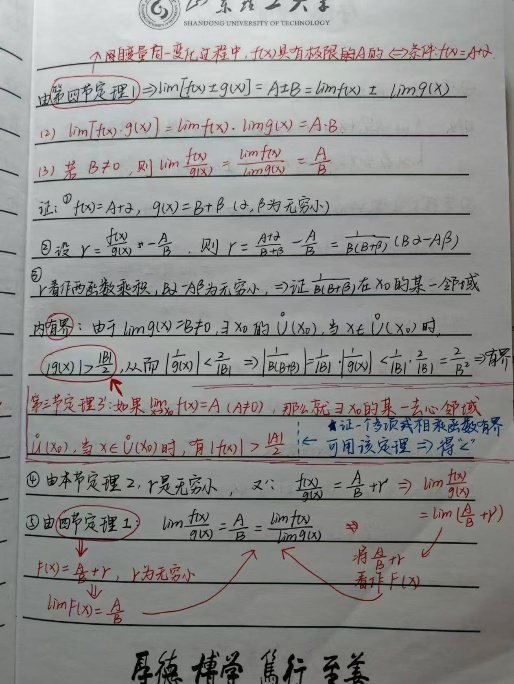 山东理工大学
SHANDONG UNIVERSITY OF TECHNOLOGY
↗同自变量同一变化过程中,f(x)具有极限的A的⇔条件:f(x)=A+α
由第四节定理1⇒lim[f(x)±g(x)]=A±B=limf(x) ± limg(x)
(2) lim[f(x)·g(x)]=limf(x)·limg(x)=A·B
(3) 若 B≠0,则 lim f(x)/g(x) = limf(x)/limg(x) = A/B
证:① f(x)=A+α, g(x)=B+β (α,β为无穷小)
②设 r= f(x)/g(x) - A/B, 则 r= (A+α)/(B+β) - A/B = 1/(B(B+β)) (Bα-Aβ)
③
r看作两函数乘积,Bα-Aβ为无穷小,⇒证 1/(B(B+β)) 在x₀的某一邻域
内有界:由于limg(x)=B≠0,∃x₀的Ů(x₀),当x∈Ů(x₀)时,
|g(x)|>|B|/2,从而|1/g(x)|<2/|B| ⇒|1/(B(B+β))|=1/|B|·|1/g(x)|<1/|B|·2/|B|=2/B² ⇒有界
第三节定理3':如果 lim f(x)=A (A≠0),那么就∃x₀的某一去心邻域
Ů(x₀),当x∈Ů(x₀)时,有|f(x)|>|A|/2
★证一个多项式相乘函数有界
可用该定理⇒得“<”
④由本节定理2,r是无穷小,又∵ f(x)/g(x) = A/B +r ⇒ lim f(x)/g(x)
= lim(A/B +r)
③由四节定理1: lim f(x)/g(x) = A/B = limf(x)/limg(x) ⇒
F(x)=A/B+r, r为无穷小
limF(x)=A/B
将A/B+r
看作F(x)
厚德 博学 笃行 至善